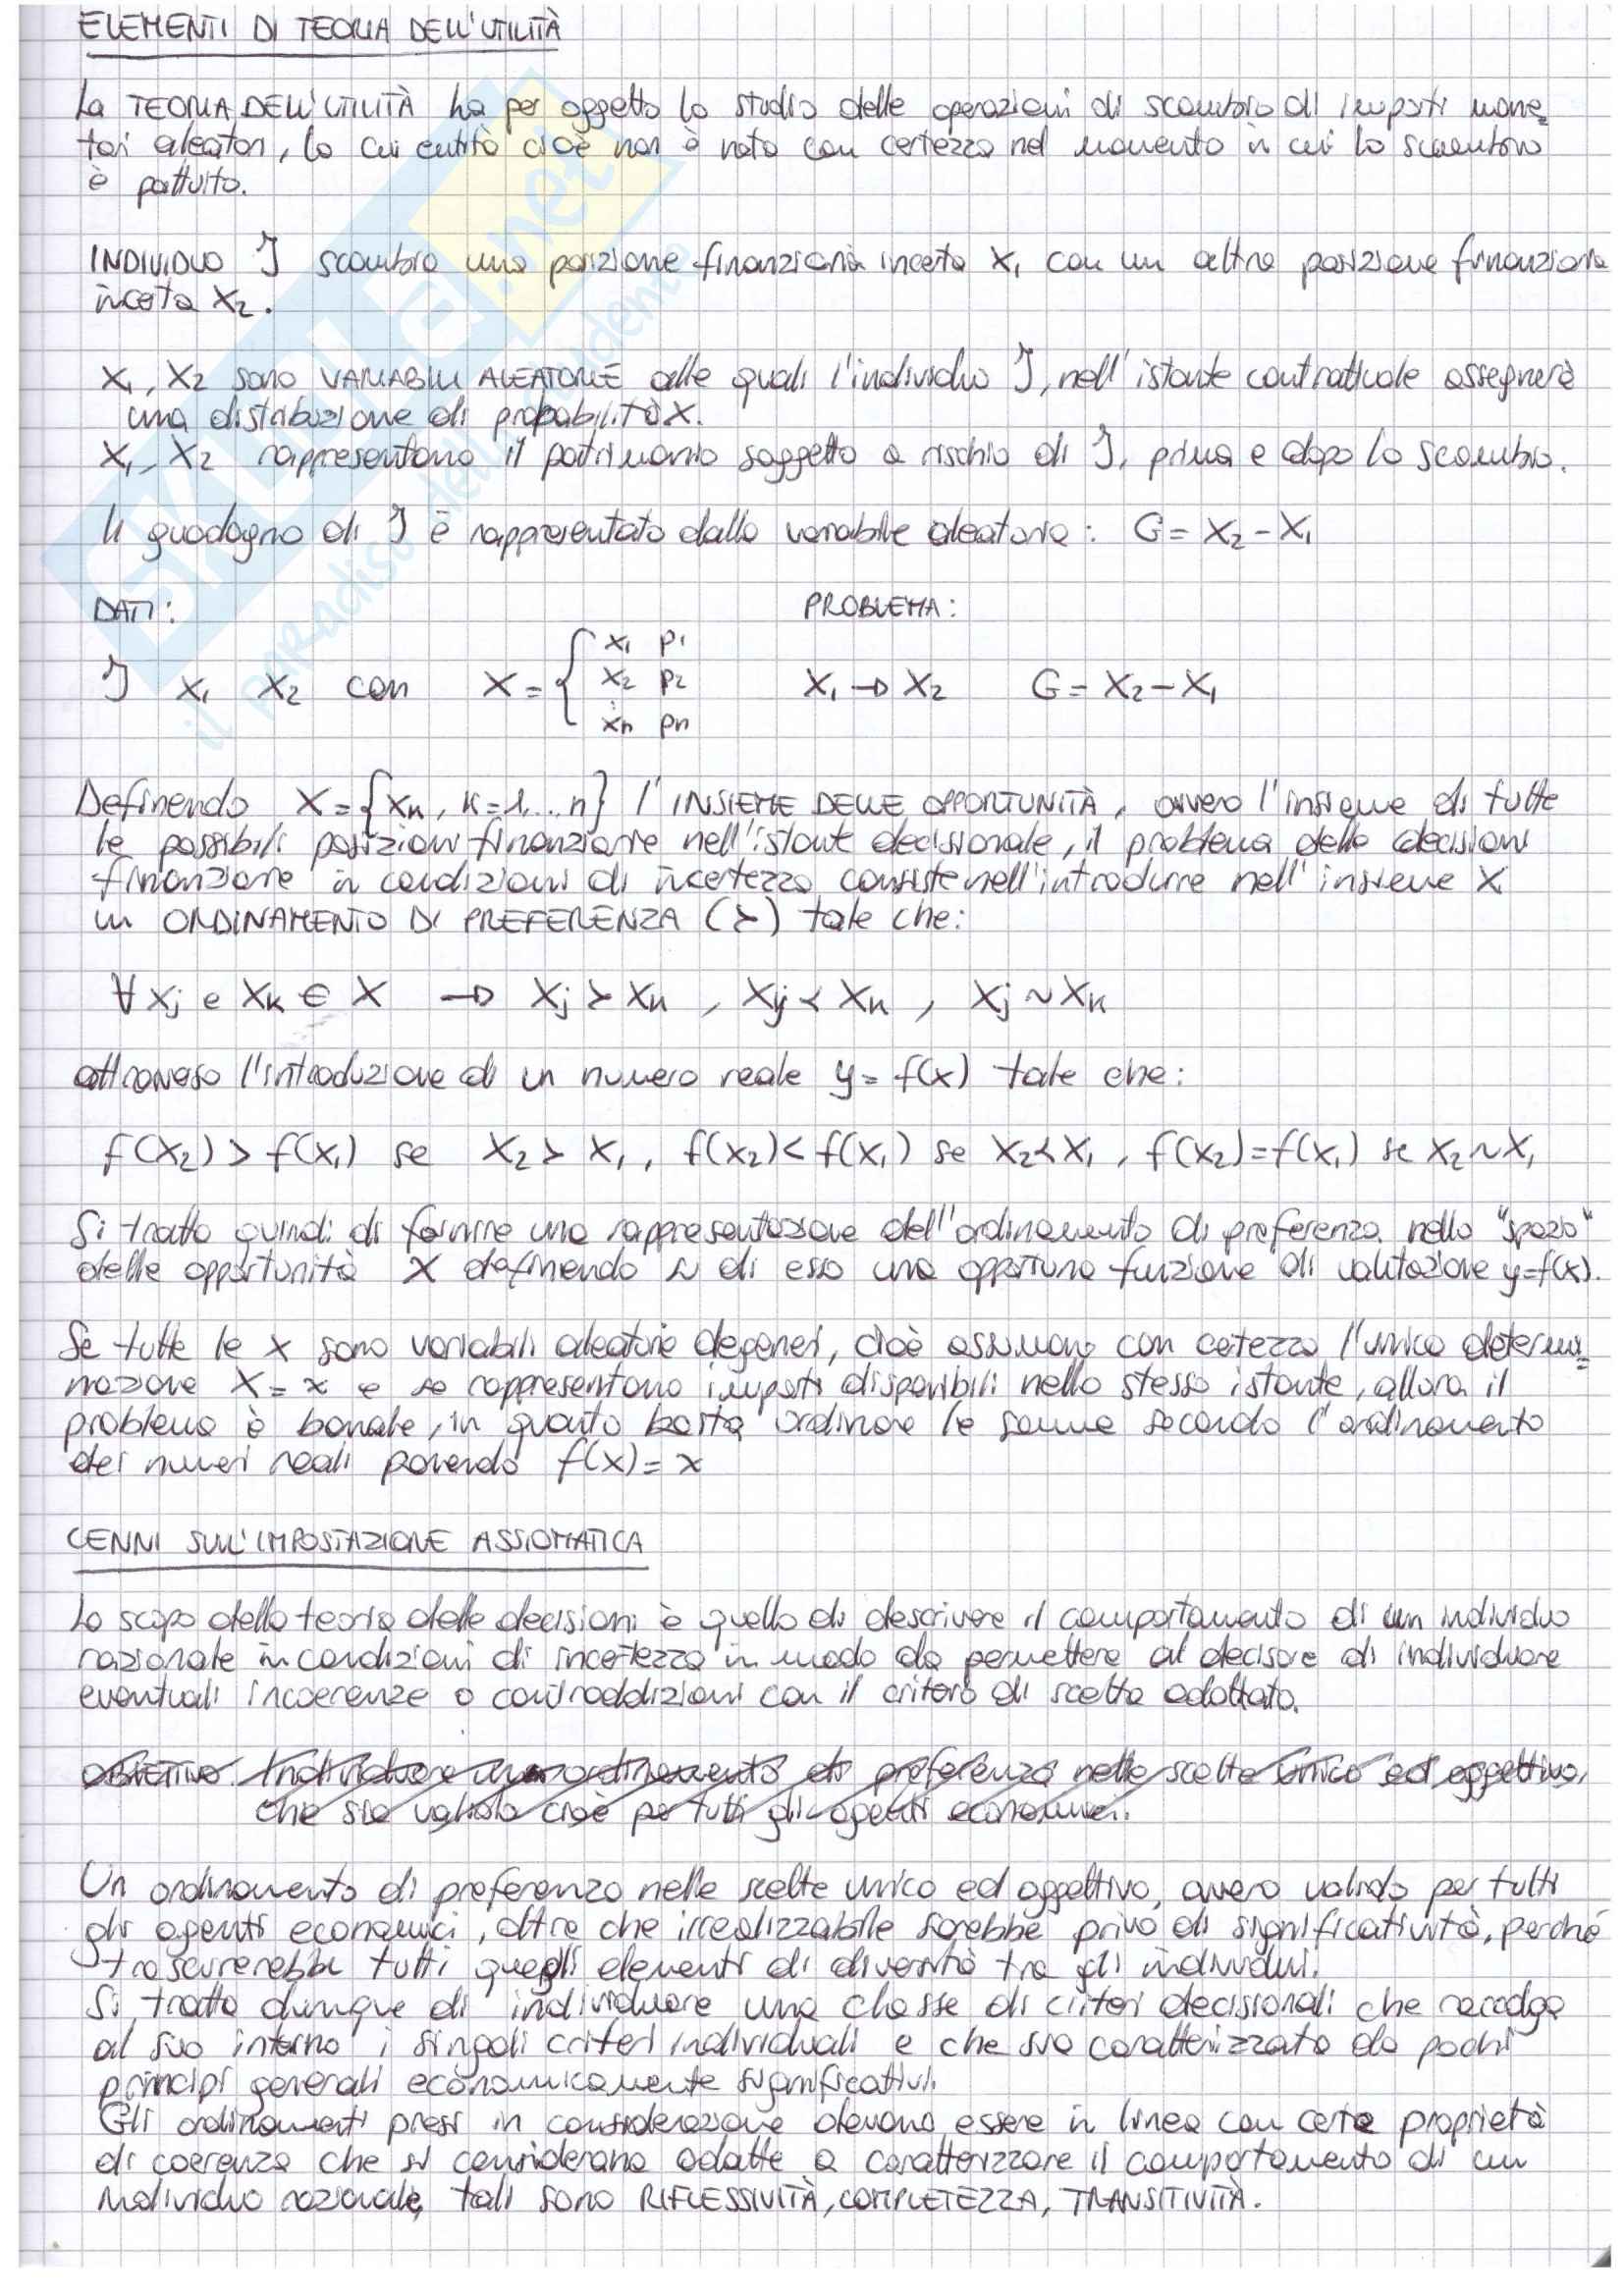 ELEMENTI DI TEORIA DELL'UTILITÀ
La TEORIA DELL'UTILITÀ ha per oggetto lo studio delle operazioni di scambio di importi mone=
tari aleatori, la cui entità cioè non è nota con certezza nel momento in cui lo scambio
è pattuito.
INDIVIDUO J scambia una posizione finanziaria incerta X₁ con un altra posizione finanziaria
incerta X₂.
X₁, X₂ sono VARIABILI ALEATORIE alle quali l'individuo J, nell'istante contrattuale assegnerà
una distribuzione di probabilità X.
X₁, X₂ rappresentano il patrimonio soggetto a rischio di J, prima e dopo lo scambio.
Il guadagno di J è rappresentato dalla variabile aleatoria: G = X₂ - X₁
DATI: PROBLEMA:
J X₁ X₂ con X = { x₁ p₁ X₁ → X₂ G = X₂ - X₁
x₂ p₂
⋮
xn pn
Definendo X = {Xk, k=1,...n} l'INSIEME DELLE OPPORTUNITÀ, ovvero l'insieme di tutte
le possibili posizioni finanziarie nell'istante decisionale, il problema delle decisioni
finanziarie in condizioni di incertezza consiste nell'introdurre nell'insieme X
un ORDINAMENTO DI PREFERENZA (≻) tale che:
∀ Xj e Xk ∈ X → Xj ≻ Xk, Xj ≺ Xk, Xj ~ Xk
attraverso l'introduzione di un numero reale y = f(x) tale che:
f(X₂) > f(X₁) se X₂ ≻ X₁, f(X₂) < f(X₁) se X₂ ≺ X₁, f(X₂) = f(X₁) se X₂ ~ X₁
Si tratta quindi di fornire una rappresentazione dell'ordinamento di preferenza nello "spazio"
delle opportunità X definendo su di esso una opportuna funzione di valutazione y=f(x).
Se tutte le X sono variabili aleatorie degeneri, cioè assumono con certezza l'unica determi=
nazione X = x e se rappresentano importi disponibili nello stesso istante, allora il
problema è banale, in quanto basta ordinare le somme secondo l'ordinamento
dei numeri reali ponendo f(x) = x
CENNI SULL'IMPOSTAZIONE ASSIOMATICA
Lo scopo della teoria delle decisioni è quello di descrivere il comportamento di un individuo
razionale in condizioni di incertezza in modo da permettere al decisore di individuare
eventuali incoerenze o contraddizioni con il criterio di scelta adottato.
OBIETTIVO: Individuare un ordinamento di preferenza nelle scelte unico ed oggettivo,
che sia valido cioè per tutti gli agenti economici.
Un ordinamento di preferenza nelle scelte unico ed oggettivo, ovvero valido per tutti
gli agenti economici, oltre che irrealizzabile sarebbe privo di significatività, perché
trascurerebbe tutti quegli elementi di diversità tra gli individui.
Si tratta dunque di individuare una classe di criteri decisionali che racolga
al suo interno i singoli criteri individuali e che sia caratterizzata da pochi
principi generali economicamente significativi.
Gli ordinamenti presi in considerazione devono essere in linea con certe proprietà
di coerenza che si considerano adatte a caratterizzare il comportamento di un
individuo razionale, tali sono RIFLESSIVITÀ, COMPLETEZZA, TRANSITIVITÀ.
SKUOLA.net
il PARADISO dello studente